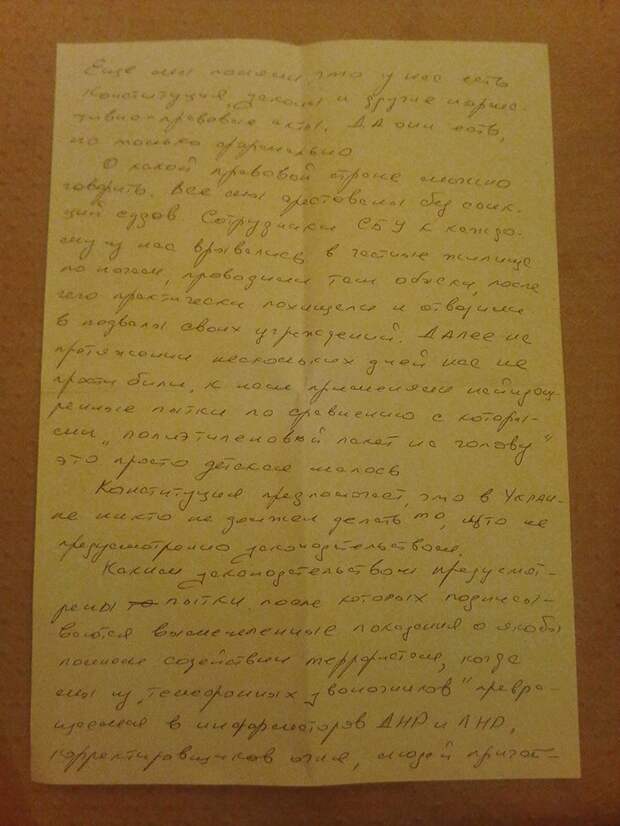 Ещё мы помним что у нас есть
Конституция, законы и другие норма-
тивно-правовые акты. ДА они есть,
но только формально
О какой правовой стране можно
говорить. Все мы арестованы без санк-
ций судов Сотрудники СБУ к каждо-
му из нас врывались в частные жилища
по ночам, проводили там обыски, после
чего практически похищали и отвозили
в подвалы своих учреждений. ДАЛее на
протяжении нескольких дней нас не
просто били, к нам применяли наизощ-
ренные пытки по сравнению с которы-
ми "полиэтиленовый пакет на голову"
это просто детская шалось
Конституция предполагает, что в Украи-
не никто не должен делать то, что не
предусмотренно законодательством.
Каким законодательством предусмот-
рены пытки после которых подписы-
ваются вымышленные показания о якобы
полном содействии террористам, когда
мы из "телефонных звоночников" превра-
щаемся в информаторов ДНР и ЛНР,
корректировщиков огня, людей пригот-